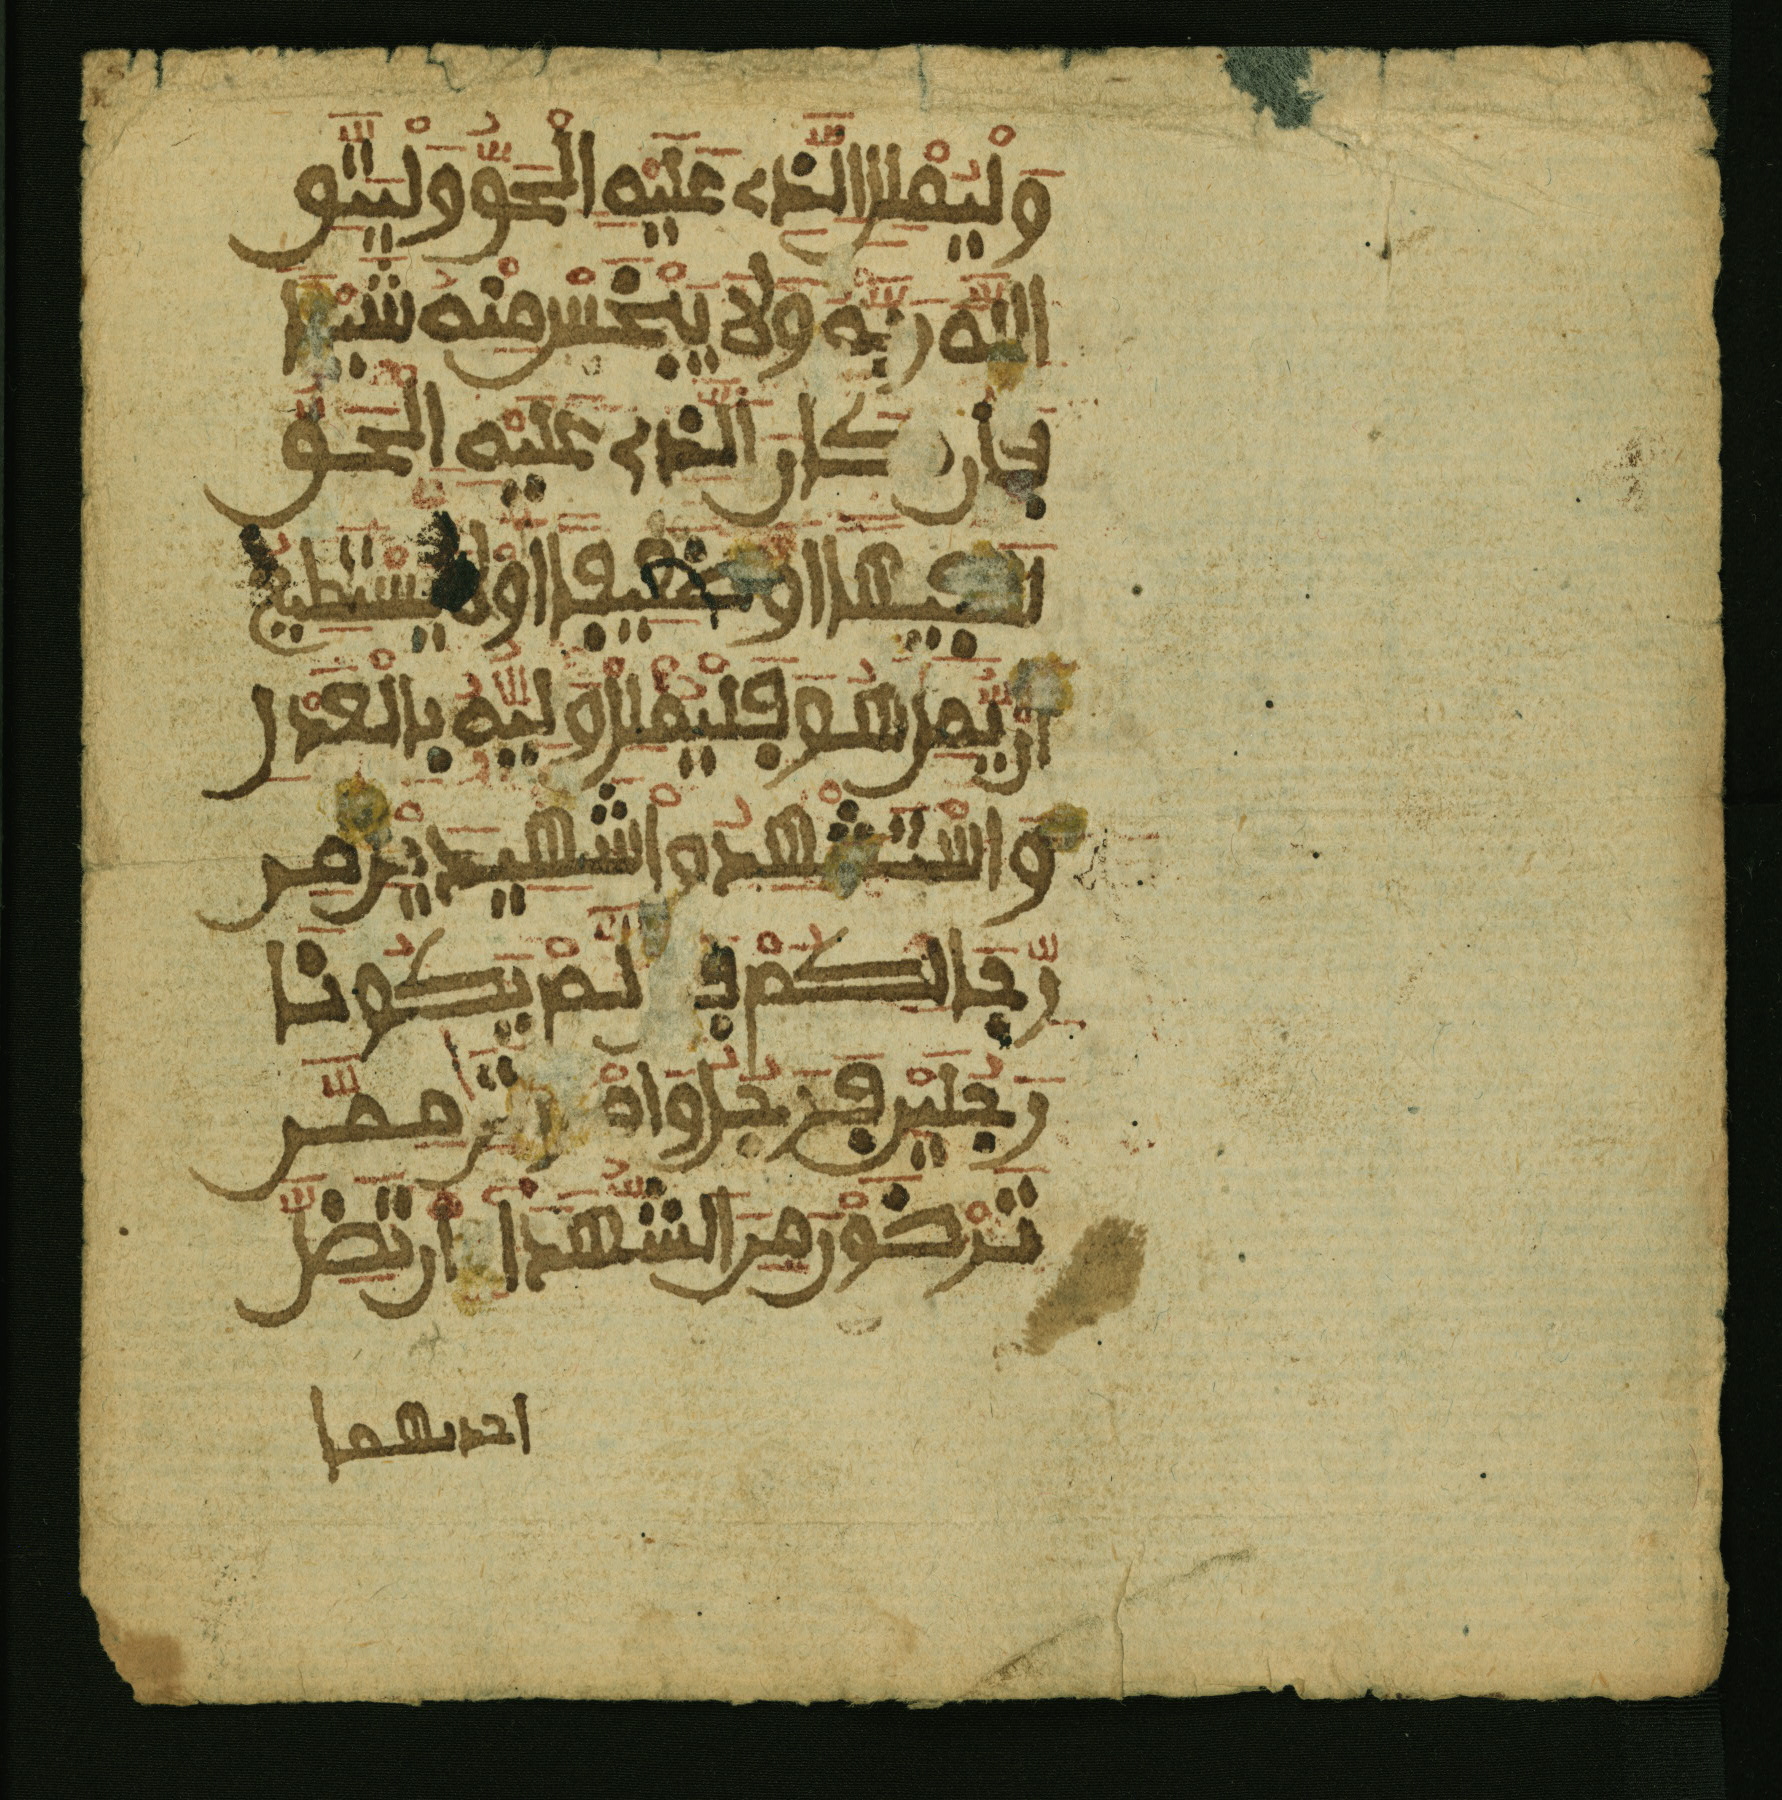 وَلْيُمْلِلِ الَّذِى عَلَيْهِ الْحَقُّ وَلْيَتَّقِ
اللَّهَ رَبَّهُ وَلَا يَبْخَسْ مِنْهُ شَيْـًٔا
فَإِن كَانَ الَّذِى عَلَيْهِ الْحَقُّ
سَفِيهًا اَوْ ضَعِيفًا اَوْ لَا يَسْتَطِيعُ
أَنْ يُّمِلَّ هُوَ فَلْيُمْلِلْ وَلِيُّهُ بِالْعَدْلِ
وَاسْتَشْهِدُواْ شَهِيدَيْنِ مِن
رِّجَالِكُمْ فَإِن لَّمْ يَكُونَا
رَجُلَيْنِ فَرَجُلٌ وَامْرَأَتَٰنِ مِمَّن
تَرْضَوْنَ مِنَ الشُّهَدَاءِ ان تَضِلَّ
احديهما